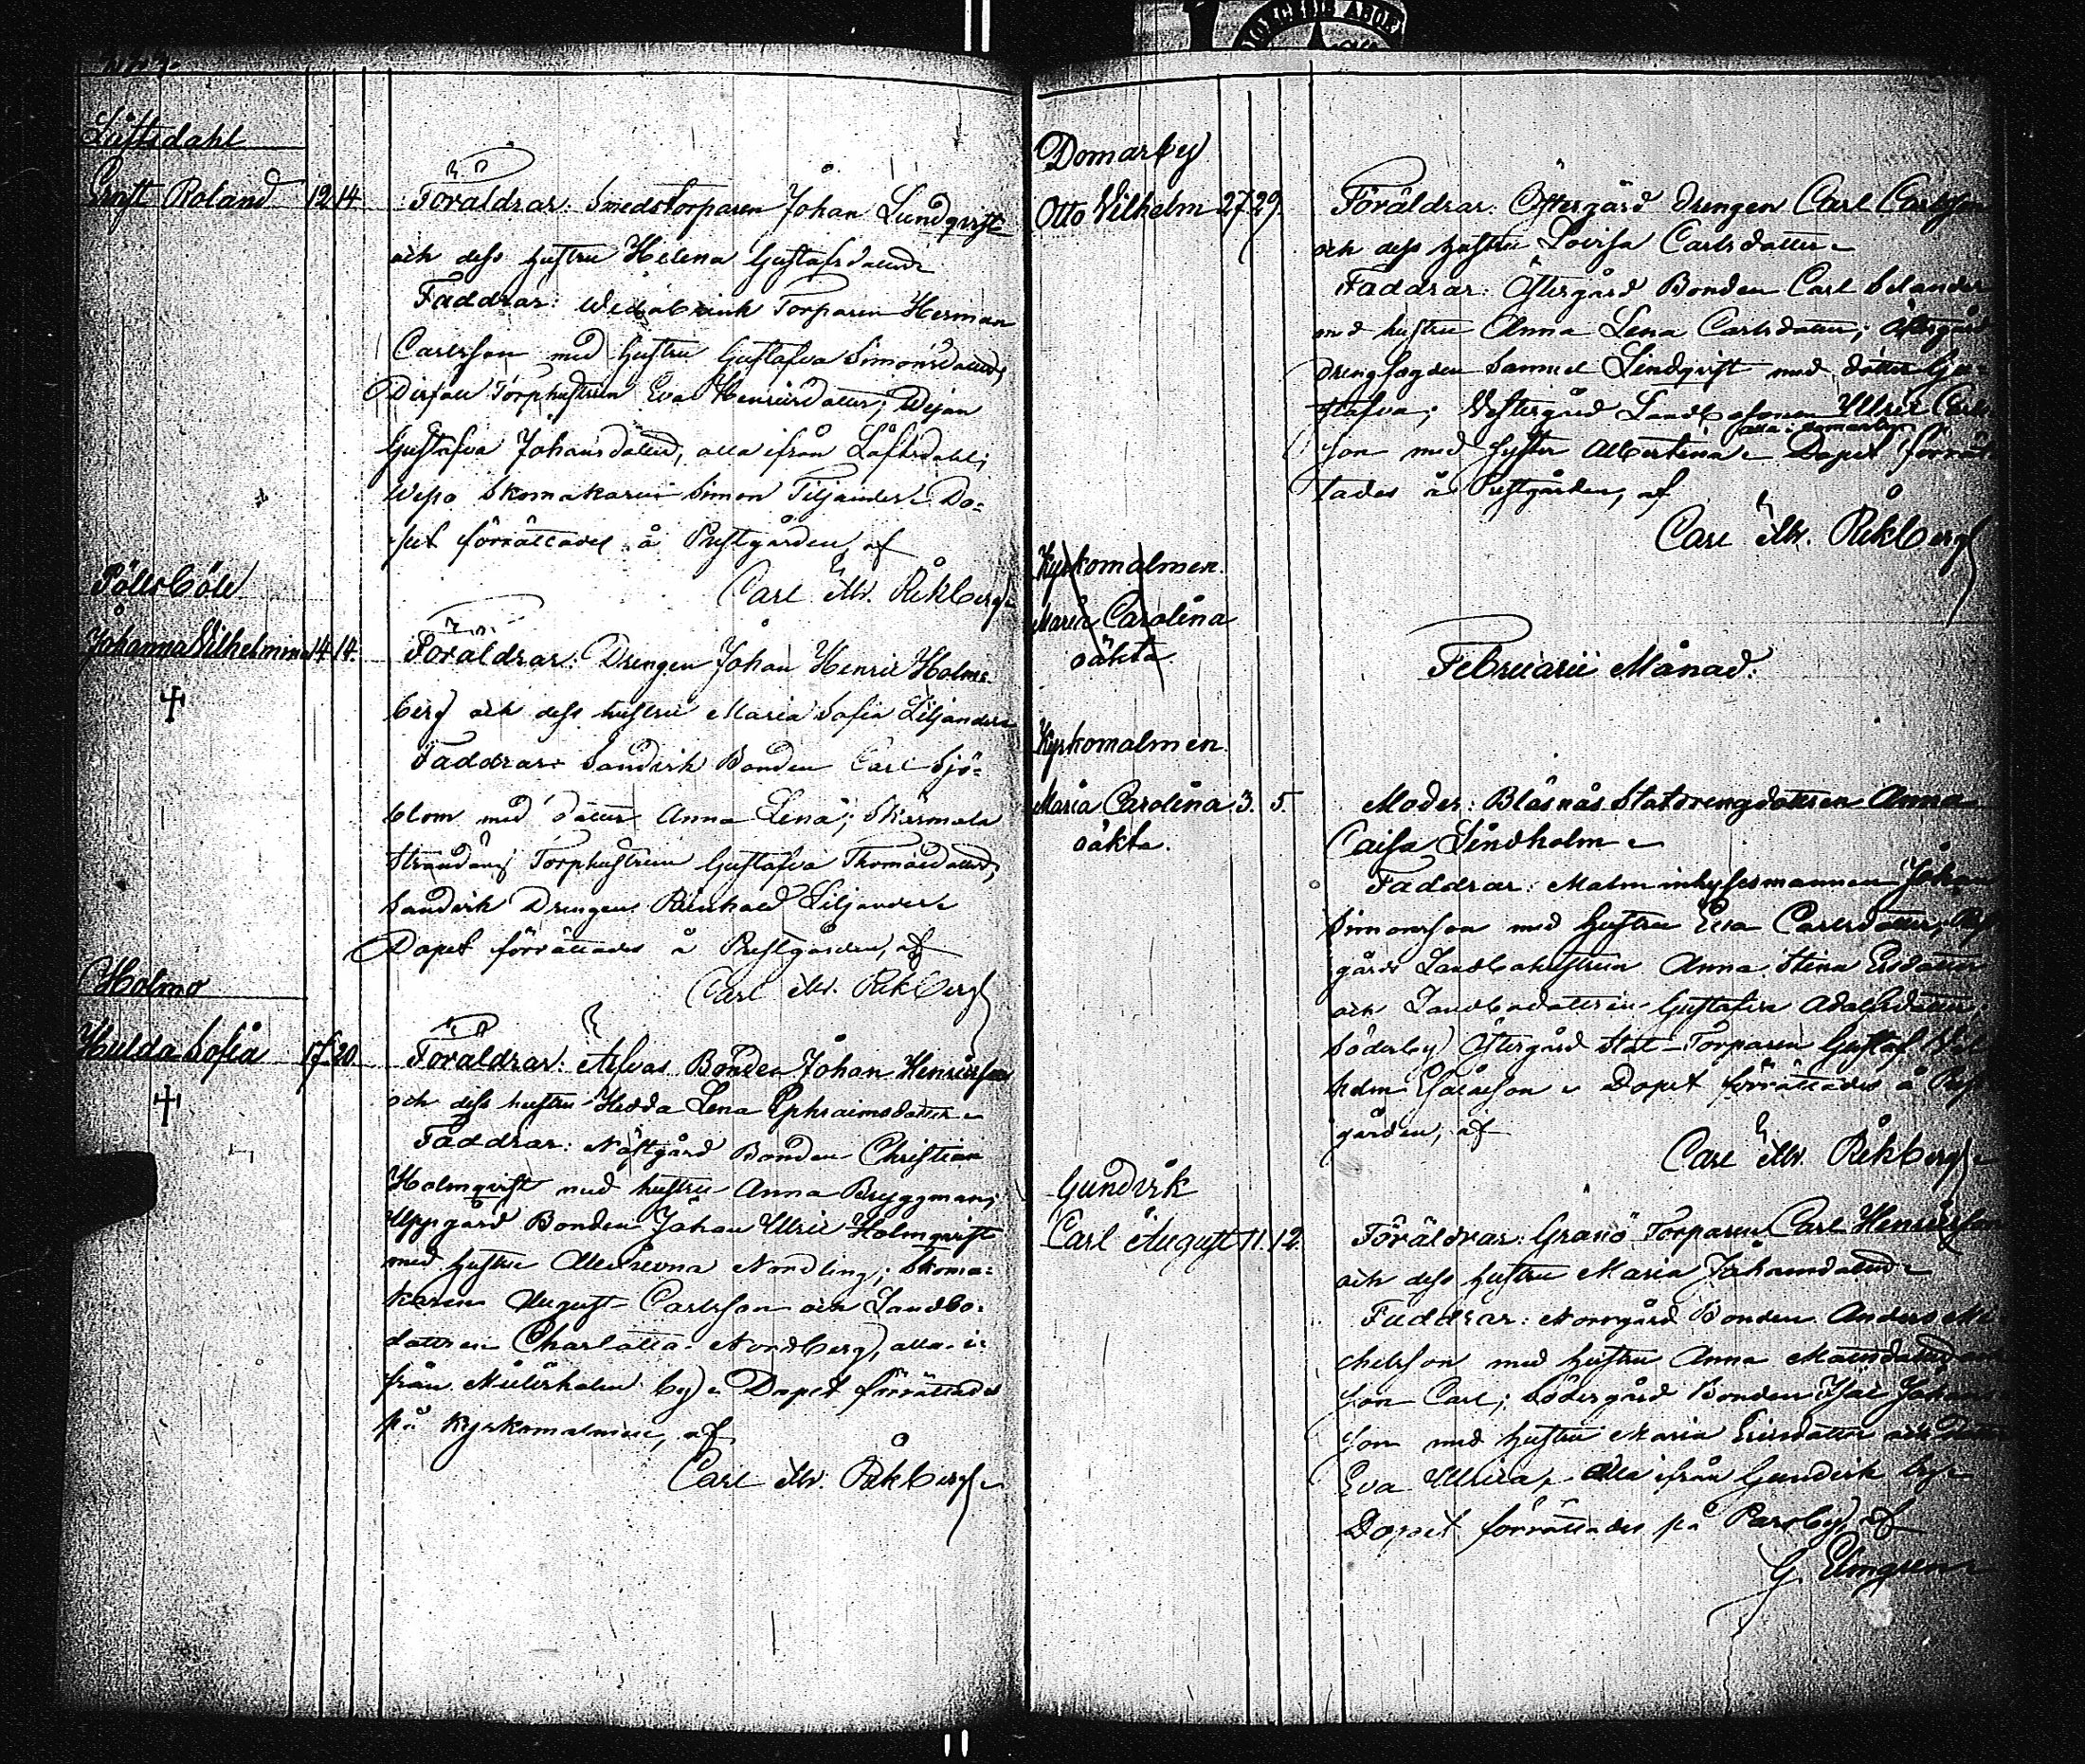 Låftsdahl
Ernst Roland 12. 14.
Föräldrar: Smedstorparen Johan Lundqvist
och dess hustru Helena Gustafsdatter
Faddrar: Torparen Herman
Carlsson med hustru Gustafva Simonsdatter,
Torphustrun Eva Henricsdatter; Pigan
Gustafva Johansdatter, alla ifrån Låftsdahl;
Skomakaren Simon Siljander. Do-
pet förrättades å Prestgården, af
Carl Mr. Rikberg
Pöllsböle
Johanna Vilhelmina 14. 14.
Föräldrar: Drengen Johan Henric Holm-
berg och dess hustru Maria Sofia Siljander
Faddrar: Sandvik Bonden Carl Sjö-
blom med datter Anna Lena; Skärmola
Torphustrun Gustafva Thomasdatter,
Sandvik Drengen Reinhold Siljander
Dopet förrättades å Prestgården, af
Carl Mr. Rikberg
Holmo
Hulda Sofia 17. 20.
Föräldrar: Bonden Johan Henricsson
och dess hustru Hedda Lena Ephraimsdatter
Faddrar: Nästgård Bonden Christian
Holmqvist med hustru Anna Bryggman;
Uppgård Bonden Johan Ulric Holmqvist
med hustru Nordling; Skoma-
karen August Carlsson och Landbo-
dattren Charlotta Nordberg, alla i-
från by. Dopet förrättades
på Kyrkomalmen, af
Carl Mr. Rikberg
Domarby
Otto Vilhelm 27. 29.
Föräldrar: Östergård Drengen Carl Carlsson
och dess hustru Lovisa Carlsdatter
Faddrar: Östergård Bonden Carl Selander
med hustru Anna Lena Carlsdatter; Östergård
Drengfogden Samuel Lindqvist med dotter Gu-
stafva; Vestergård Landbosonen Ulric Carls-
alla i Domarby
son med syster Albertina. Dopet förrät-
tades å Prestgården, af
Carl Mr. Rikberg
Kyrkomalmen.
Maria Carolina
oäkta.
Februarii Månad.
Kyrkomalmen.
Maria Carolina 3. 5.
oäkta.
Moder: Blåsnäs Statdrengdattren Anna
Caisa Lindholm
Faddrar: Malm inhysesmannen Johan
Simonsson med hustru Eva Carlsdatter,
gårds Landbohustrun Anna Stina Ersdatter
och Landbodattren Gustafva Adolfsdatter;
Söderby Östergård Stat-Torparen Gustaf Vil-
helm Isacsson. Dopet förrättades å Prest-
gården, af
Carl Mr. Rikberg
Gundvik
Carl August 11. 12.
Föräldrar: Granö Torparen Carl Henricsson
och dess hustru Maria Johansdatter
Faddrar: Norrgård Bonden Anders Mi-
chelsson med hustru Anna
son Carl; Södergård Bonden Isac Johans-
son med hustru Maria Ericsdatter och Datter
Eva Ulrica, alla ifrån Gundvik by
Dopet förrättades på Parsby, af
G. Elmgren